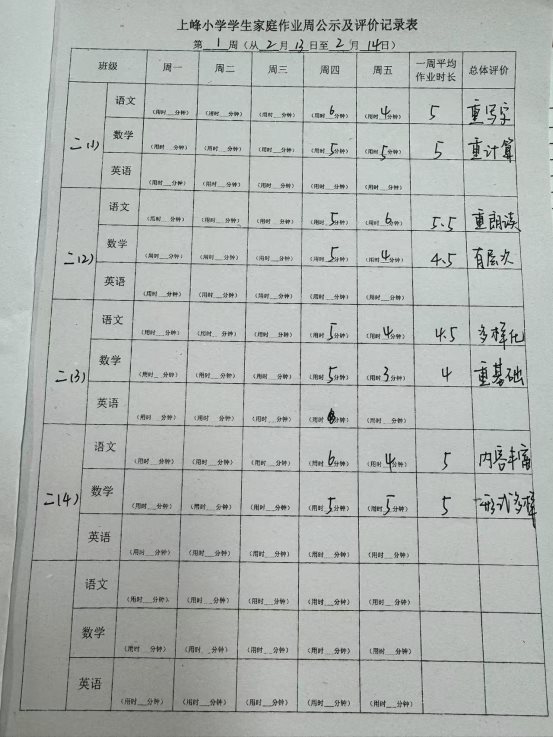 上峰小学学生家庭作业周公示及评价记录表
第 1 周（从 2 月 13 日至 2 月 14 日）
班级 周一 周二 周三 周四 周五 一周平均作业时长 总体评价
二(1)
语文 （用时__分钟） （用时__分钟） （用时__分钟） （用时 6 分钟） （用时 4 分钟） 5 重写字
数学 （用时__分钟） （用时__分钟） （用时__分钟） （用时 5 分钟） （用时 5 分钟） 5 重计算
英语 （用时__分钟） （用时__分钟） （用时__分钟） （用时__分钟） （用时__分钟）
二(2)
语文 （用时__分钟） （用时__分钟） （用时__分钟） （用时 5 分钟） （用时 6 分钟） 5.5 重朗读
数学 （用时__分钟） （用时__分钟） （用时__分钟） （用时 5 分钟） （用时 4 分钟） 4.5 有层次
英语 （用时__分钟） （用时__分钟） （用时__分钟） （用时__分钟） （用时__分钟）
二(3)
语文 （用时__分钟） （用时__分钟） （用时__分钟） （用时 5 分钟） （用时 4 分钟） 4.5 多样化
数学 （用时__分钟） （用时__分钟） （用时__分钟） （用时 5 分钟） （用时 3 分钟） 4 重基础
英语 （用时__分钟） （用时__分钟） （用时__分钟） （用时 分钟） （用时__分钟）
二(4)
语文 （用时__分钟） （用时__分钟） （用时__分钟） （用时 6 分钟） （用时 4 分钟） 5 内容丰富
数学 （用时__分钟） （用时__分钟） （用时__分钟） （用时 5 分钟） （用时 5 分钟） 5 形式多样
英语 （用时__分钟） （用时__分钟） （用时__分钟） （用时__分钟） （用时__分钟）
语文 （用时__分钟） （用时__分钟） （用时__分钟） （用时__分钟） （用时__分钟）
数学 （用时__分钟） （用时__分钟） （用时__分钟） （用时__分钟） （用时__分钟）
英语 （用时__分钟） （用时__分钟） （用时__分钟） （用时__分钟） （用时__分钟）